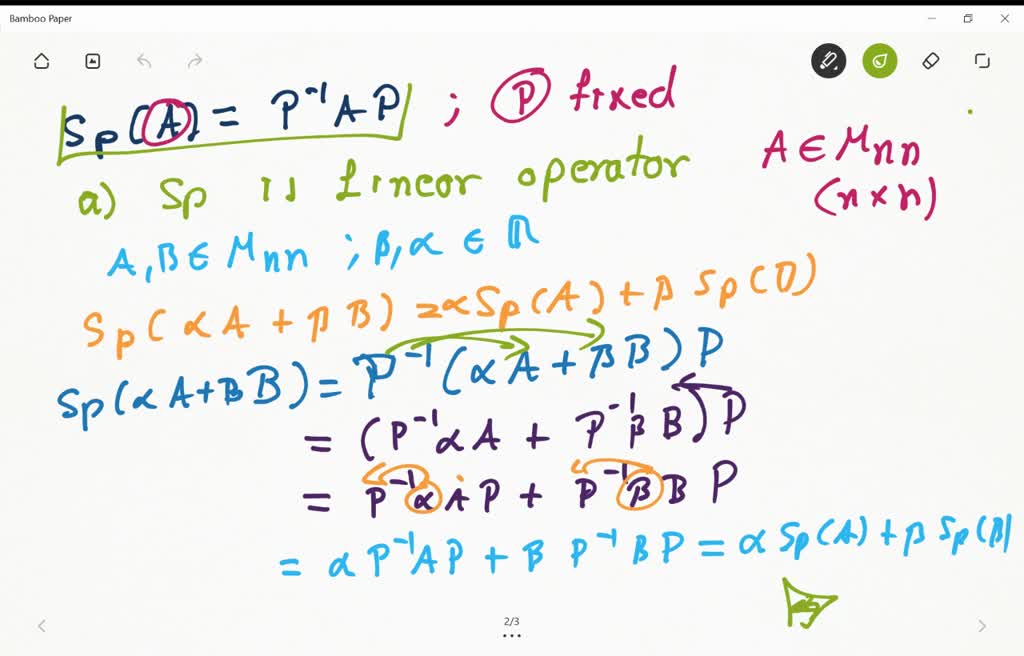 Bamboo Paper
Sp(A) = P⁻¹AP ; P fixed
A ∈ Mnn
(n × n)
a) Sp is Linear operator
A, B ∈ Mnn ; β, α ∈ ℝ
Sp(αA + βB) = αSp(A) + β Sp(D)
Sp(αA+βB) = P⁻¹(αA + βB)P
= (P⁻¹αA + P⁻¹βB)P
= P⁻¹αAP + P⁻¹βB P
= αP⁻¹AP + β P⁻¹BP = α Sp(A) + β Sp(B)
2/3